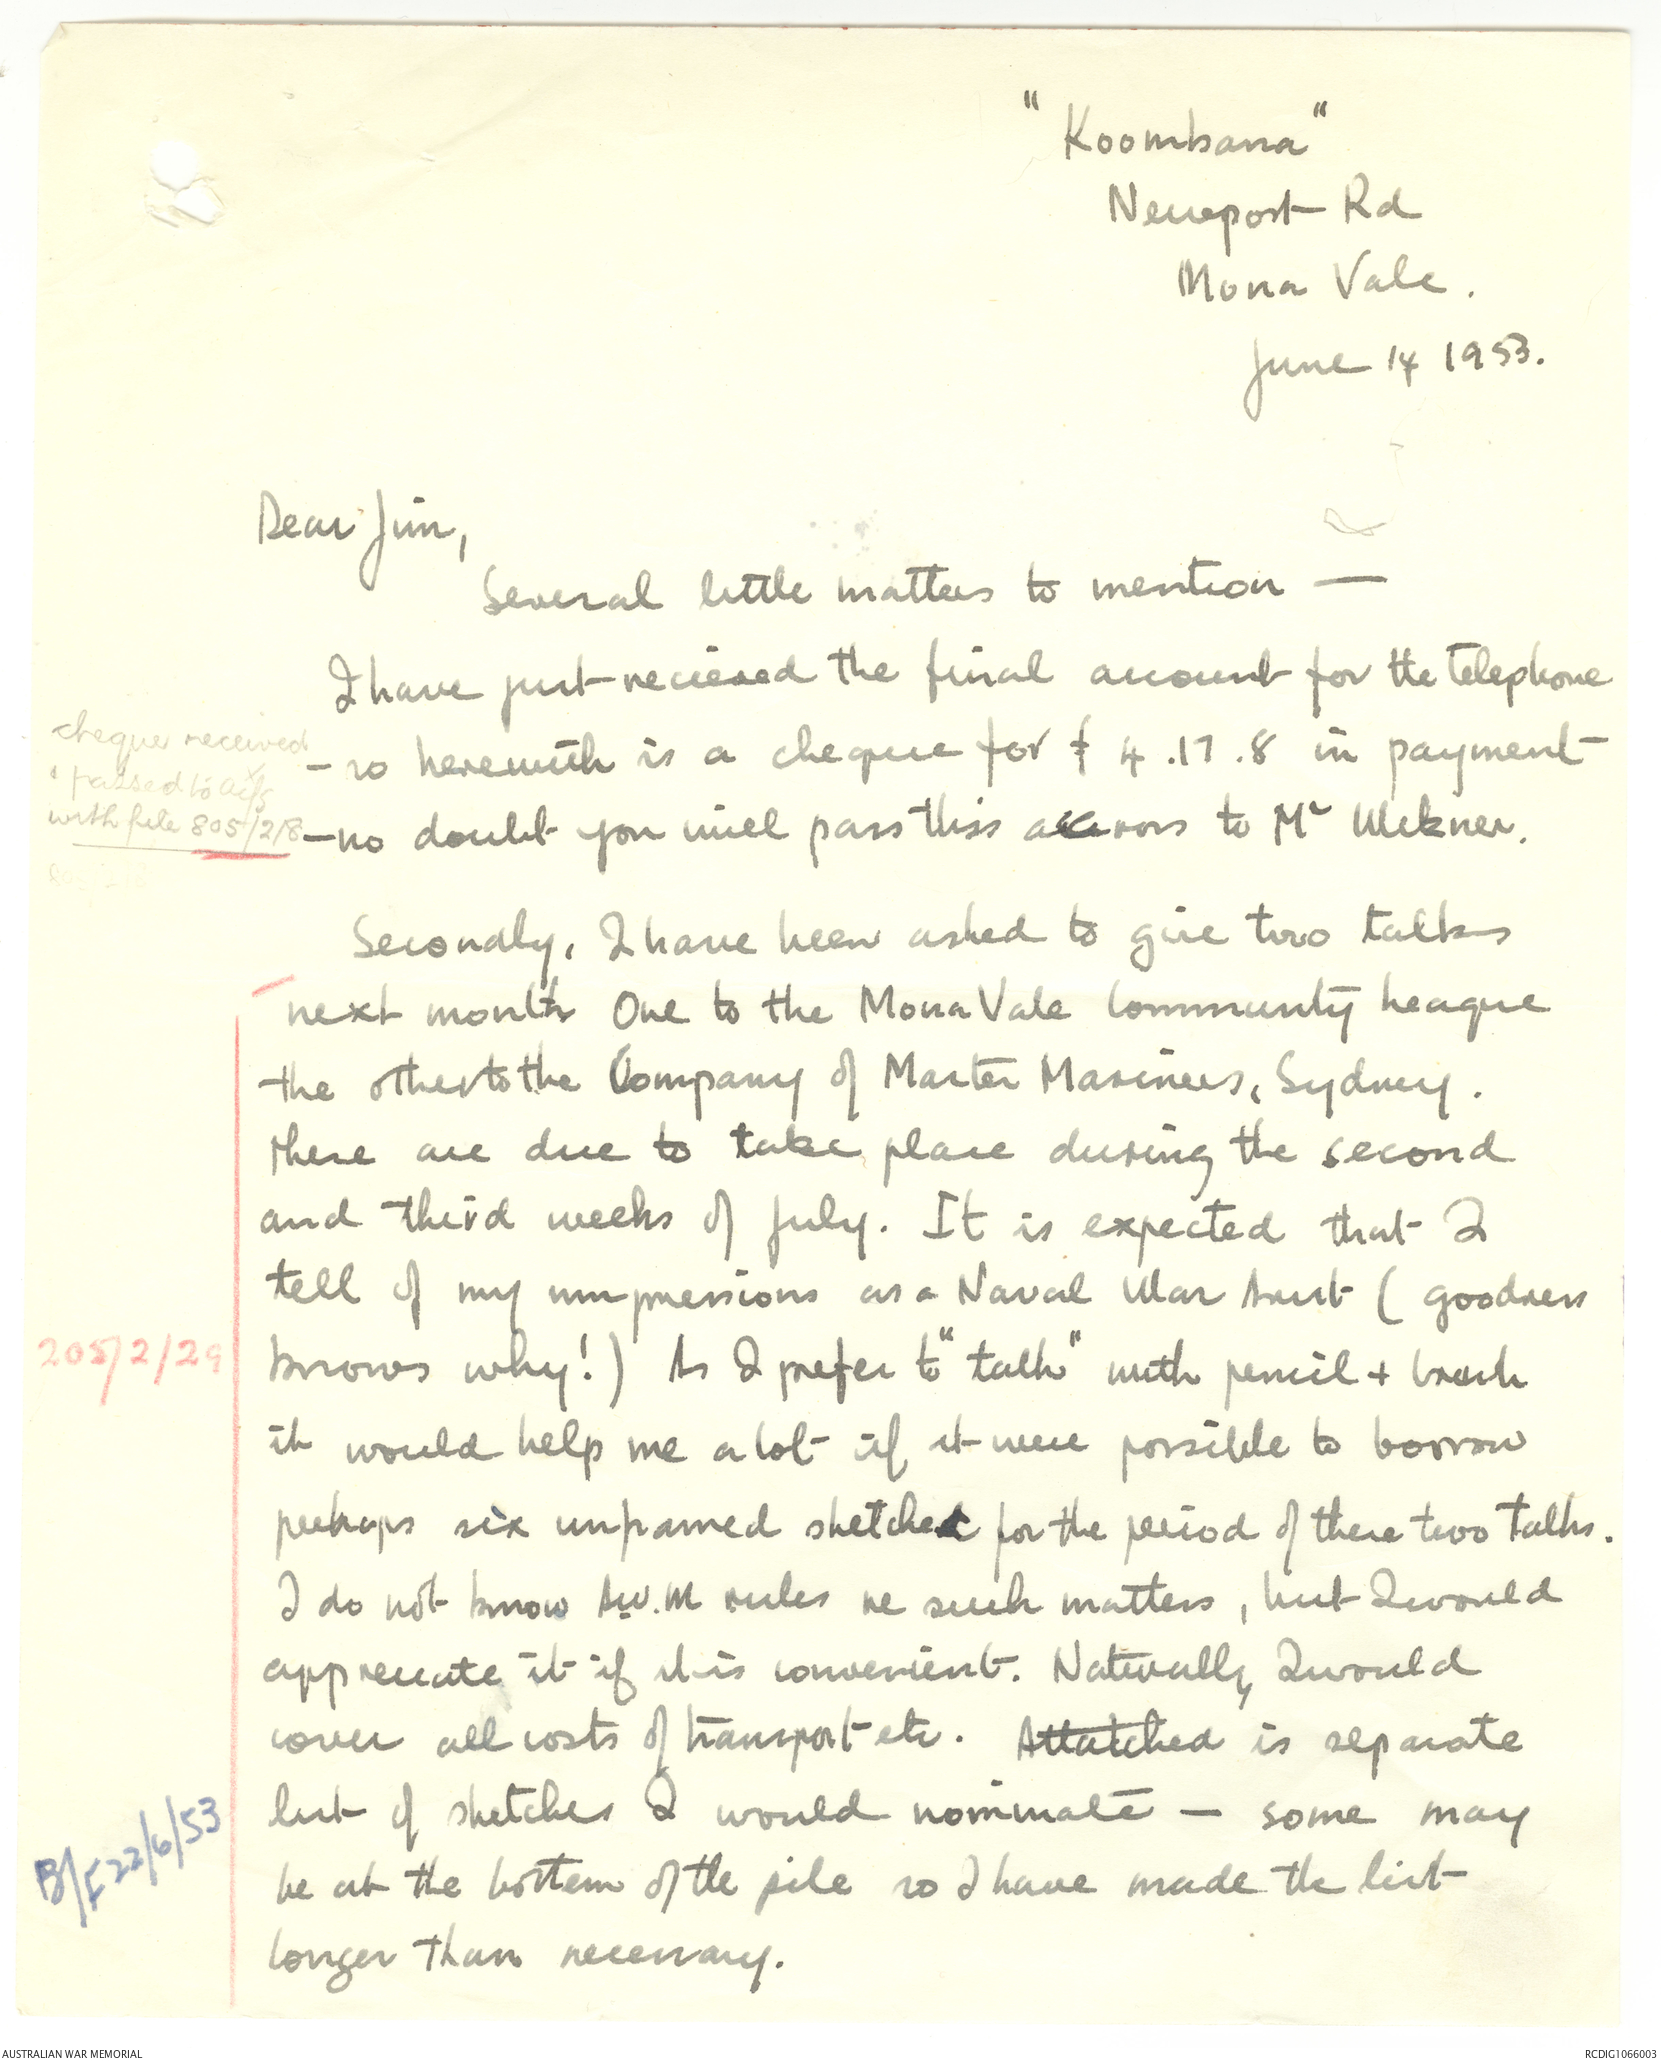 "Koombana"
Newport Rd
Mona Vale.
June 14 1953.
Dear Jim,
Several little matters to mention —
I have just recieved the final account for the telephone
— so herewith is a cheque for £ 4.17.8 in payment
— no doubt you will pass this across to Mr
cheque received
& passed to a/cs
with file 805/2/8
Secondly, I have been asked to give two talks
next month One to the Mona Vale Community League
the other to the Company of Master Mariners, Sydney.
These are due to take place during the second
and third weeks of July. It is expected that I
tell of my impressions as a Naval War Artist (goodness
knows why!) As I prefer to "talk" with pencil + brush
it would help me a lot if it were possible to borrow
perhaps six unframed sketches for the period of these two talks.
I do not know A.W.M rules re such matters, but I would
appreciate it if it is convenient. Naturally I would
cover all costs of transport etc. Attatched is separate
list of sketches I would nominate — some may
be at the bottem of the pile so I have made the list
longer than necessary.
205/2/29
B/F 22/6/53
AUSTRALIAN WAR MEMORIAL
RCDIG1066003